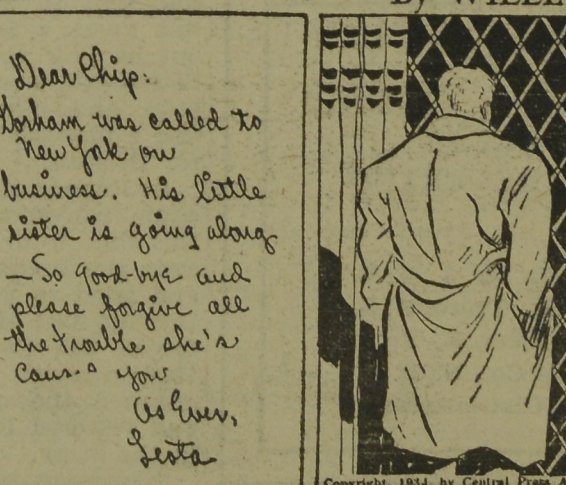 By WILL
Dear Chip:
Gorham was called to
New York on
business. His little
sister is going along
—So good-bye and
please forgive all
the trouble she's
you
As Ever,
Leota
Copyright, 1934, by Central Press A